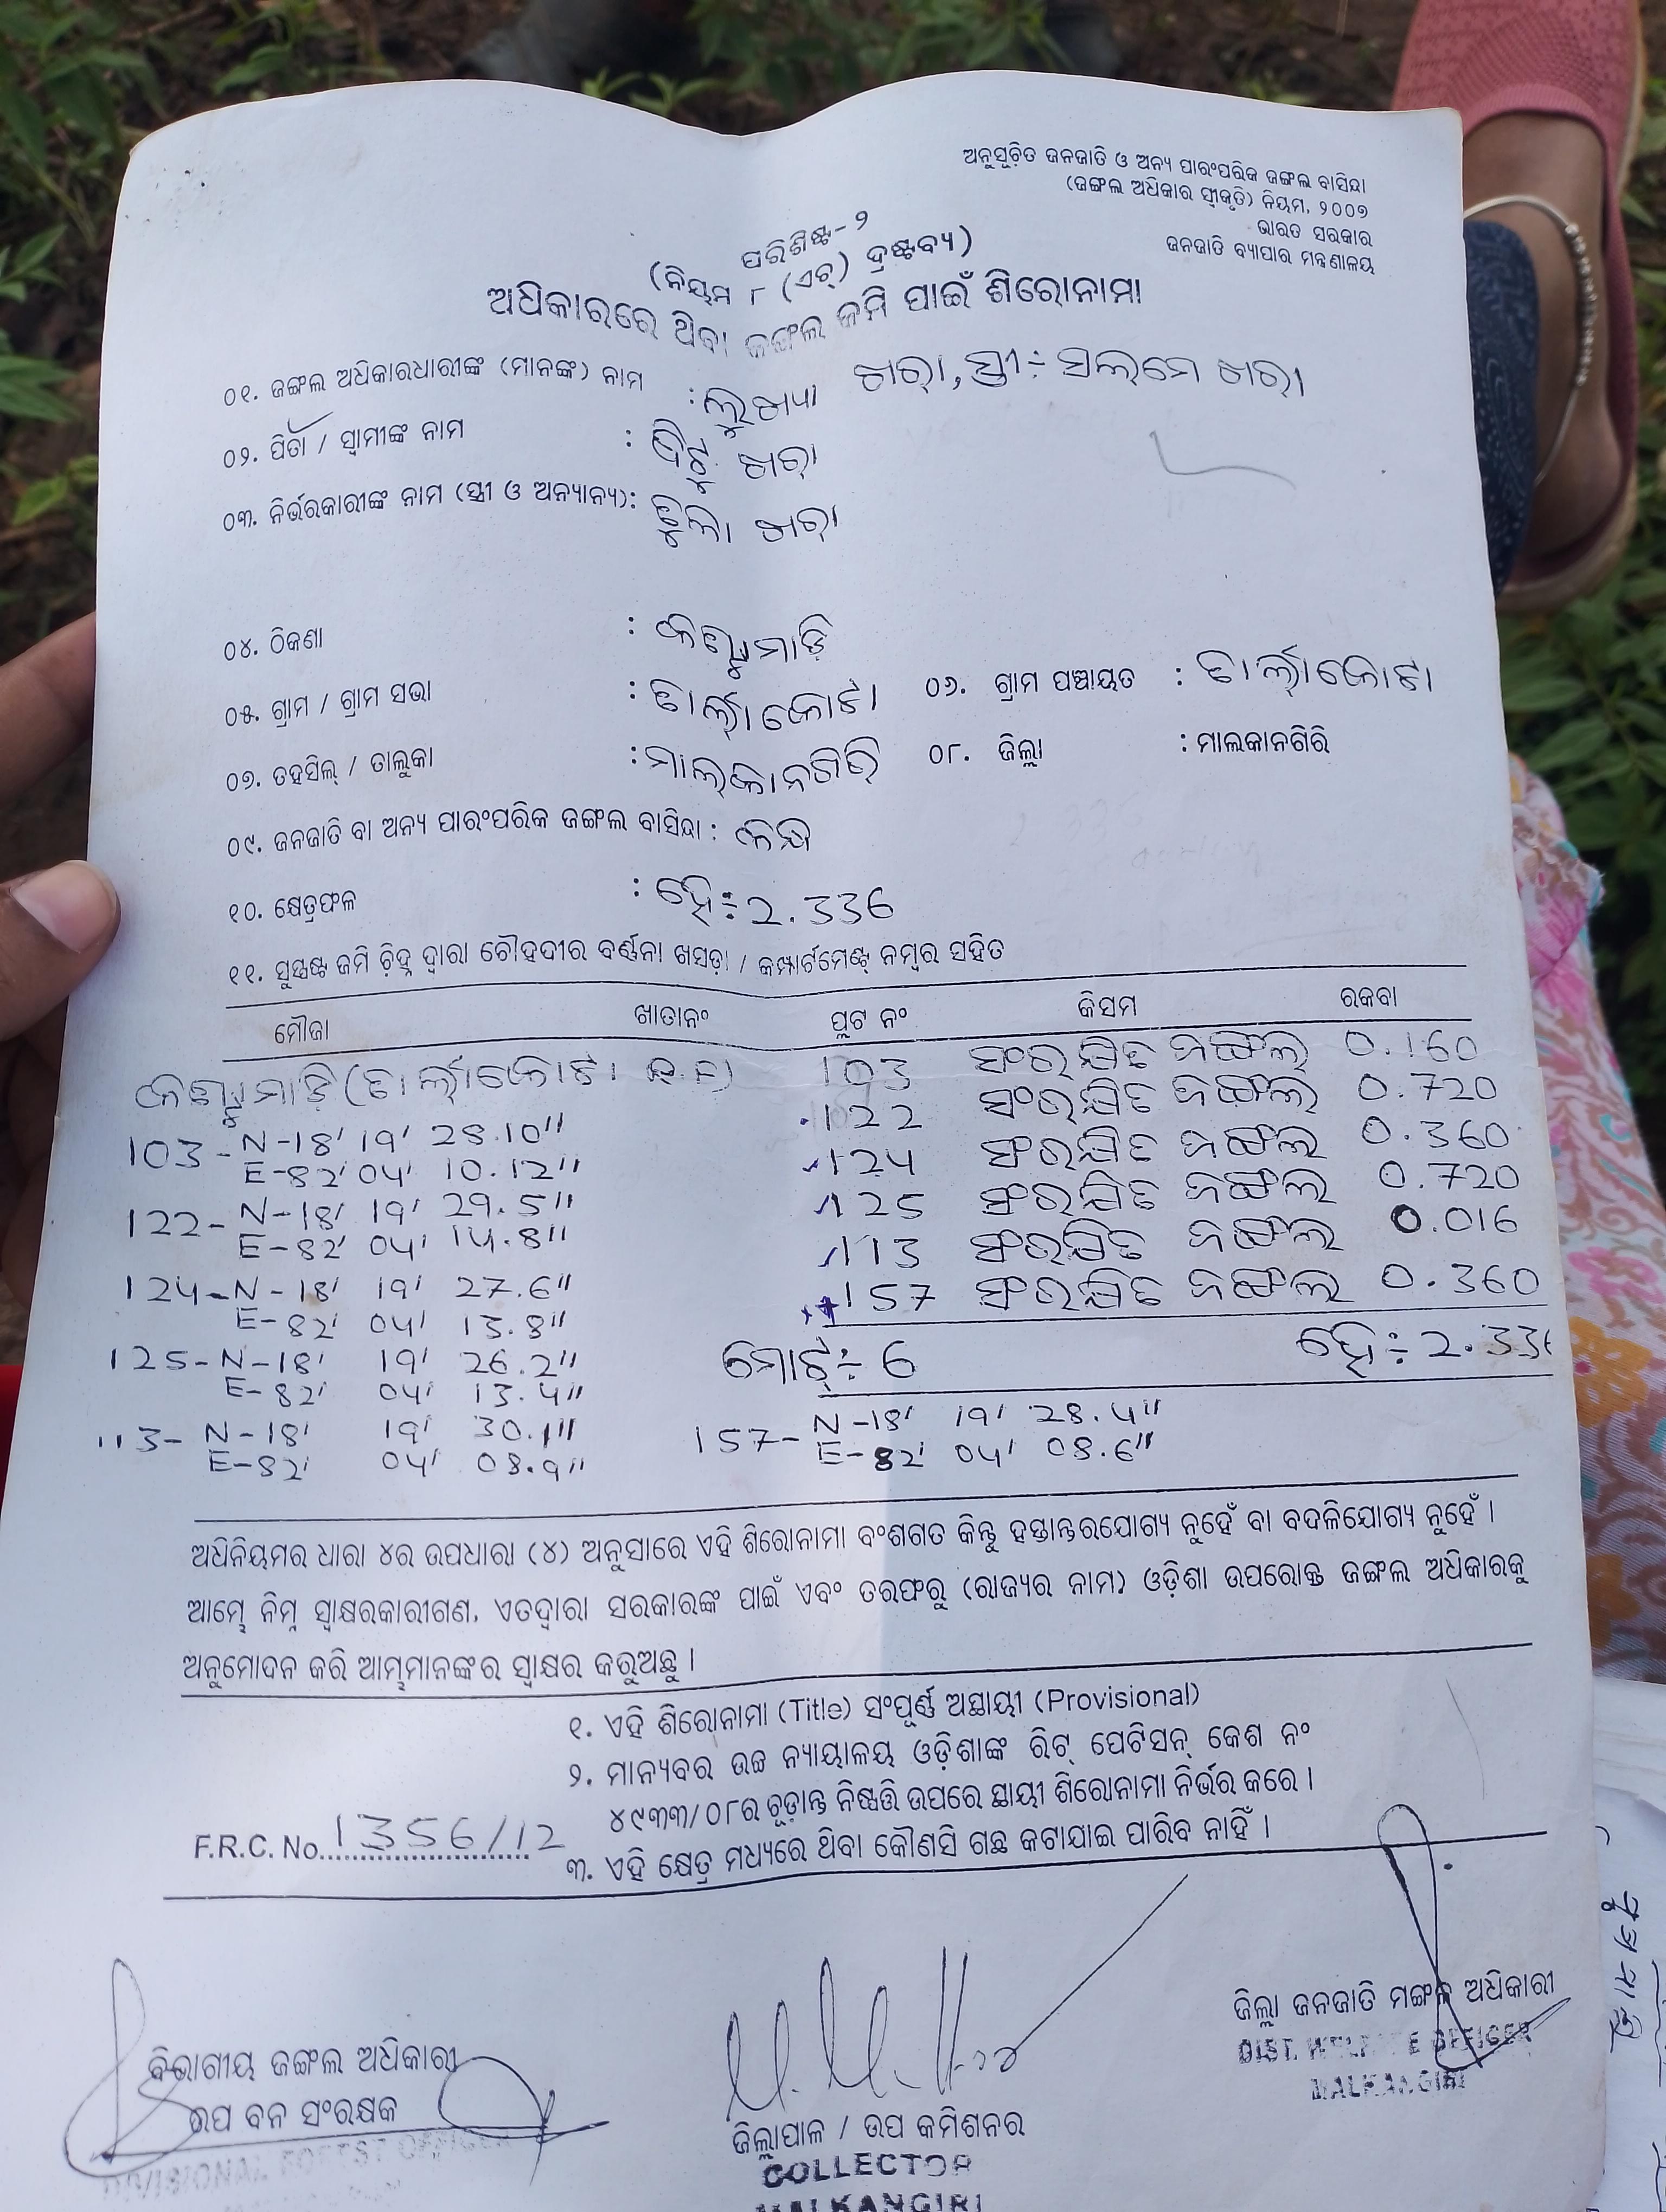 ଅନୁସୂଚିତ ଜନଜାତି ଓ ଅନ୍ୟ ପାରଂପରିକ ଜଙ୍ଗଲ ବାସିନ୍ଦା
(ଜଙ୍ଗଲ ଅଧିକାର ସ୍ୱୀକୃତି) ନିୟମ, ୨୦୦୭
ଭାରତ ସରକାର
ଜନଜାତି ବ୍ୟାପାର ମନ୍ତ୍ରଣାଳୟ
ପରିଶିଷ୍ଟ-୨
(ନିୟମ ୮ (ଏଚ୍) ଦ୍ରଷ୍ଟବ୍ୟ)
ଅଧିକାରରେ ଥିବା ଜଙ୍ଗଲ ଜମି ପାଇଁ ଶିରୋନାମା
୦୧. ଜଙ୍ଗଲ ଅଧିକାରଧାରୀଙ୍କ (ମାନଙ୍କ) ନାମ : ଖରା, ସ୍ତ୍ରୀ÷ ସଲମେ ଖରା
୦୨. ପିତା / ସ୍ୱାମୀଙ୍କ ନାମ : ଖରା
୦୩. ନିର୍ଭରକାରୀଙ୍କ ନାମ (ସ୍ତ୍ରୀ ଓ ଅନ୍ୟାନ୍ୟ): ଖରା
୦୪. ଠିକଣା :
୦୫. ଗ୍ରାମ / ଗ୍ରାମ ସଭା : ତାର୍ଲାକୋଟା ୦୬. ଗ୍ରାମ ପଞ୍ଚାୟତ : ତାର୍ଲାକୋଟା
୦୭. ତହସିଲ୍ / ତାଲୁକା : ମାଲକାନଗିରି ୦୮. ଜିଲ୍ଲା : ମାଲକାନଗିରି
୦୯. ଜନଜାତି ବା ଅନ୍ୟ ପାରଂପରିକ ଜଙ୍ଗଲ ବାସିନ୍ଦା :
୧୦. କ୍ଷେତ୍ରଫଳ : ହେ÷ 2.336
୧୧. ସୁସ୍ପଷ୍ଟ ଜମି ଚିହ୍ନ ଦ୍ୱାରା ଚୌହଦୀର ବର୍ଣ୍ଣନା ଖସଡ଼ା / କମ୍ପାର୍ଟମେଣ୍ଟ୍ ନମ୍ବର ସହିତ
ମୌଜା ଖାତାନଂ ପ୍ଲଟ ନଂ କିସମ ରକବା
(ତାର୍ଲାକୋଟା R.F) 103 ସଂରକ୍ଷିତ ଜଙ୍ଗଲ 0.160
122 ସଂରକ୍ଷିତ ଜଙ୍ଗଲ 0.720
103- N-18' 19' 28.10"
E-82' 04' 10.12" 124 ସଂରକ୍ଷିତ ଜଙ୍ଗଲ 0.360
122- N-18' 19' 29.5" 125 ସଂରକ୍ଷିତ ଜଙ୍ଗଲ 0.720
E-82' 04' 14.8" 113 ସଂରକ୍ଷିତ ଜଙ୍ଗଲ 0.016
124- N-18' 19' 27.6" 157 ସଂରକ୍ଷିତ ଜଙ୍ଗଲ 0.360
E-82' 04' 13.8"
125- N-18' 19' 26.2" ମୋଟ୍÷ 6 ହେ÷ 2.336
E-82' 04' 13.4"
113- N-18' 19' 30.1" 157- N-18' 19' 28.4"
E-82' 04' 08.9" E-82' 04' 08.6"
ଅଧିନିୟମର ଧାରା ୪ର ଉପଧାରା (୪) ଅନୁସାରେ ଏହି ଶିରୋନାମା ବଂଶଗତ କିନ୍ତୁ ହସ୍ତାନ୍ତରଯୋଗ୍ୟ ନୁହେଁ ବା ବଦଳିଯୋଗ୍ୟ ନୁହେଁ ।
ଆମ୍ଭେ ନିମ୍ନ ସ୍ୱାକ୍ଷରକାରୀଗଣ, ଏତଦ୍ଵାରା ସରକାରଙ୍କ ପାଇଁ ଏବଂ ତରଫରୁ (ରାଜ୍ୟର ନାମ) ଓଡ଼ିଶା ଉପରୋକ୍ତ ଜଙ୍ଗଲ ଅଧିକାରକୁ
ଅନୁମୋଦନ କରି ଆମ୍ଭମାନଙ୍କର ସ୍ୱାକ୍ଷର କରୁଅଛୁ ।
୧. ଏହି ଶିରୋନାମା (Title) ସଂପୂର୍ଣ୍ଣ ଅସ୍ଥାୟୀ (Provisional)
୨. ମାନ୍ୟବର ଉଚ୍ଚ ନ୍ୟାୟାଳୟ ଓଡ଼ିଶାଙ୍କ ରିଟ୍ ପେଟିସନ୍ କେଶ ନଂ
୪୯୩୩/୦୮ର ଚୂଡ଼ାନ୍ତ ନିଷ୍ପତ୍ତି ଉପରେ ସ୍ଥାୟୀ ଶିରୋନାମା ନିର୍ଭର କରେ ।
F.R.C. No. 1356/12
୩. ଏହି କ୍ଷେତ୍ର ମଧ୍ୟରେ ଥିବା କୌଣସି ଗଛ କଟାଯାଇ ପାରିବ ନାହିଁ ।
ଜିଲ୍ଲା ଜନଜାତି ମଙ୍ଗଳ ଅଧିକାରୀ
DIST. WELFARE OFFICER
MALKANGIRI
ବିଭାଗୀୟ ଜଙ୍ଗଲ ଅଧିକାରୀ
ଉପ ବନ ସଂରକ୍ଷକ
DIVISIONAL FOREST OFFICER
ଜିଲ୍ଲାପାଳ / ଉପ କମିଶନର
COLLECTOR
MALKANGIRI